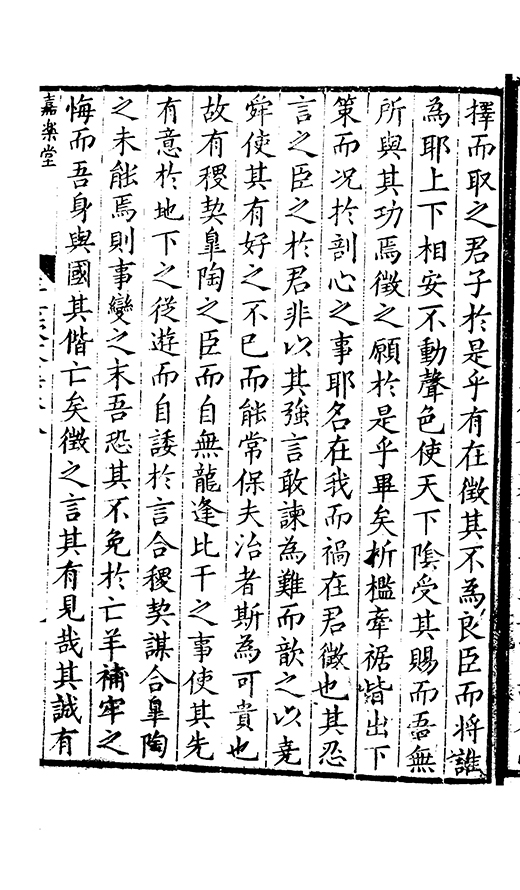 擇而取之君子於是乎有在徵其不為良臣而将誰
為耶上下相安不動聲色使天下陰受其賜而吾無
所與其功焉徵之願於是乎畢矣折檻牽裾皆出下
策而况於剖心之事耶名在我而禍在君徵也其忍
言之臣之於君非以其強言敢諫為難而歆之以堯
舜使其有好之不已而能常保夫治者斯為可貴也
故有稷契臯陶之臣而自無龍逢比干之事使其先
有意於地下之從遊而自諉於言合稷契謀合臯陶
之未能焉則事變之末吾恐其不免於亡羊補牢之
悔而吾身與國其偕亡矣徵之言其有見哉其誠有
嘉樂堂